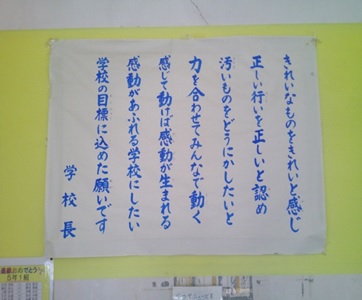 きれいなものをきれいと感じ
正しい行いを正しいと認め
汚いものをどうにかしたいと
力を合わせてみんなで動く
感じて動けば感動が生まれる
感動があふれる学校にしたい
学校の目標に込めた願いです
学校長
5年1組